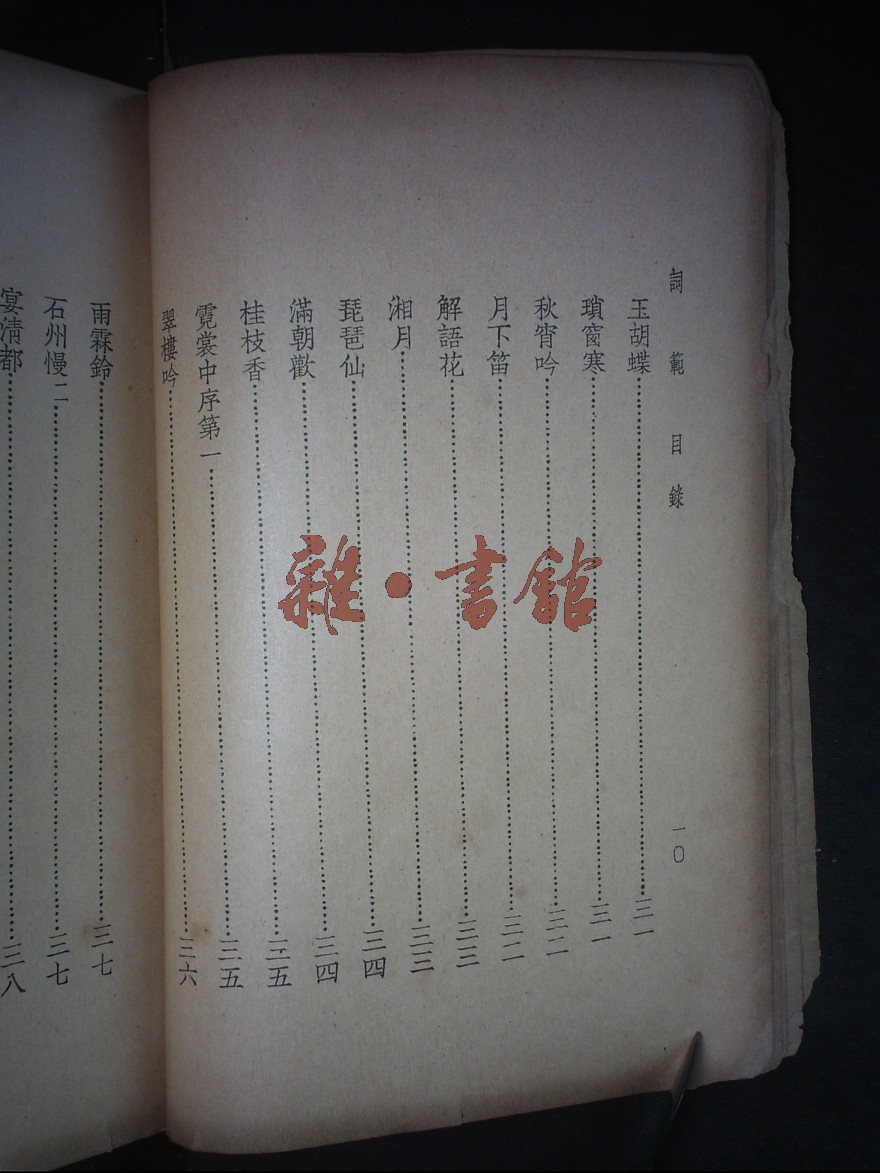 詞範目錄 一〇
玉胡蝶……三一
瑣窗寒……三一
秋宵吟……三二
月下笛……三二
解語花……三三
湘月……三三
琵琶仙……三四
滿朝歡……三四
桂枝香……三五
霓裳中序第一……三五
翠樓吟……三六
雨霖鈴……三七
石州慢二……三七
宴清都……三八
雜·書館